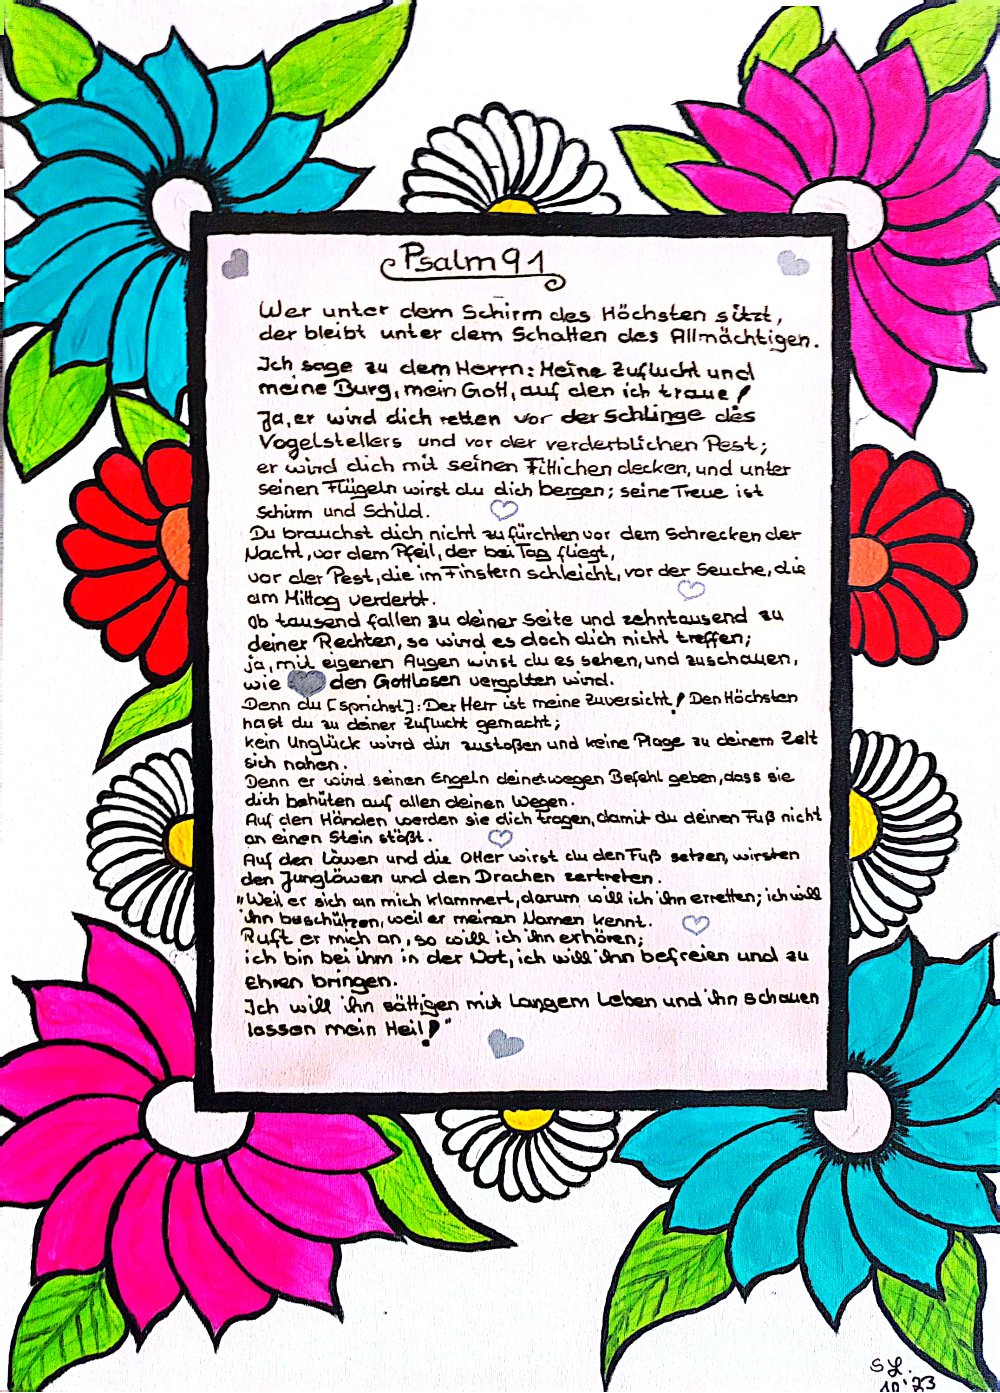 Psalm 91
Wer unter dem Schirm des Höchsten sitzt,
der bleibt unter dem Schatten des Allmächtigen.
Ich sage zu dem Herrn: Meine Zuflucht und
meine Burg, mein Gott, auf den ich traue!
Ja, er wird dich retten vor der Schlinge des
Vogelstellers und vor der verderblichen Pest;
er wird dich mit seinen Fittichen decken, und unter
seinen Flügeln wirst du dich bergen; seine Treue ist
Schirm und Schild.
Du brauchst dich nicht zu fürchten vor dem Schrecken der
Nacht, vor dem Pfeil, der bei Tag fliegt,
vor der Pest, die im Finstern schleicht, vor der Seuche, die
am Mittag verderbt.
Ob tausend fallen zu deiner Seite und zehntausend zu
deiner Rechten, so wird es doch dich nicht treffen;
ja, mit eigenen Augen wirst du es sehen, und zuschauen,
wie den Gottlosen vergolten wird.
Denn du [sprichst]: Der Herr ist meine Zuversicht! Den Höchsten
hast du zu deiner Zuflucht gemacht;
kein Unglück wird dir zustoßen und keine Plage zu deinem Zelt
sich nahen.
Denn er wird seinen Engeln deinetwegen Befehl geben, dass sie
dich behüten auf allen deinen Wegen.
Auf den Händen werden sie dich tragen, damit du deinen Fuß nicht
an einen Stein stößt.
Auf den Löwen und die Otter wirst du den Fuß setzen, wirst den
den Junglöwen und den Drachen zertreten.
"Weil er sich an mich klammert, darum will ich ihn erretten; ich will
ihn beschützen, weil er meinen Namen kennt.
Ruft er mich an, so will ich ihn erhören;
ich bin bei ihm in der Not, ich will ihn befreien und zu
Ehren bringen.
Ich will ihn sättigen mit langem Leben und ihn schauen
lassen mein Heil!"
SL.
10'23